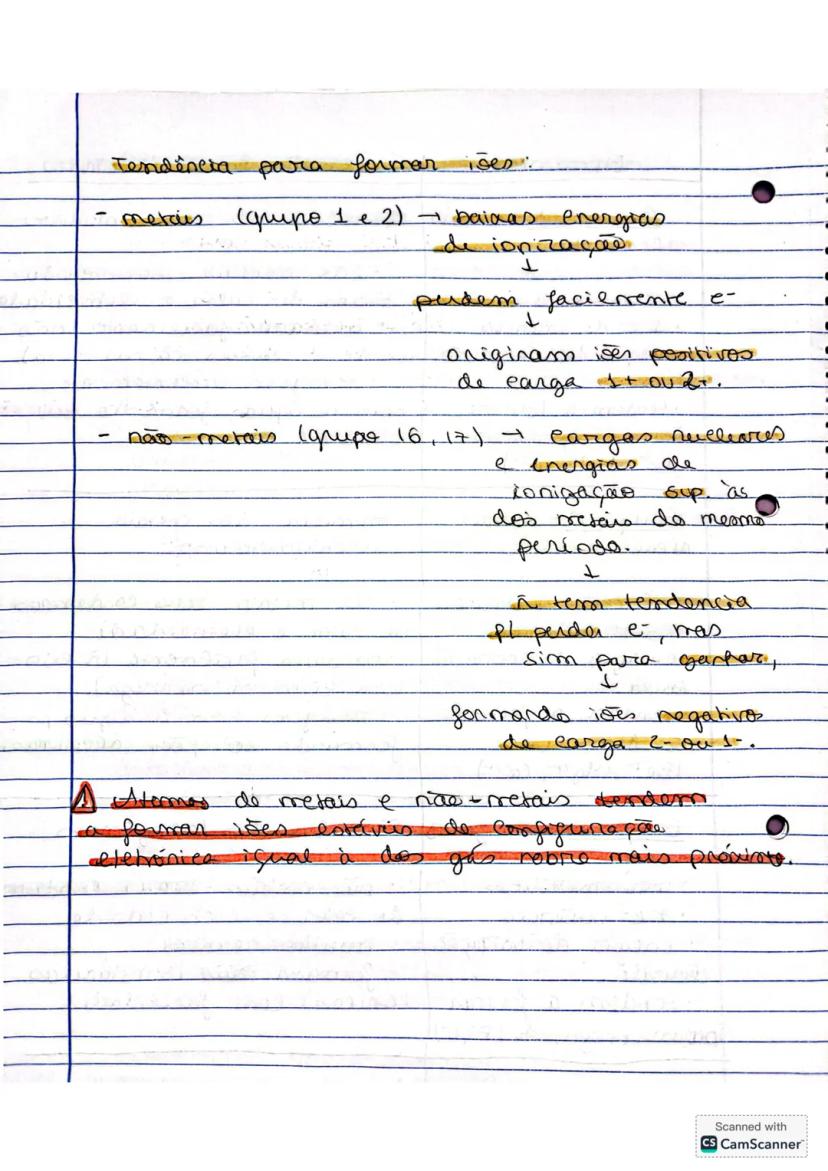 Tendência para formar iões:
- metais (grupo 1 e 2) → baixas energias
de ionização
↓
perdem facilmente e-
↓
originam iões positivos
de carga 1+ ou 2+.
- não-metais (grupo 16, 17) → cargas nucleares
e energias de
ionização sup. às
dos metais do mesmo
período.
↓
ñ tem tendencia
p/ perder e-, mas
sim para ganhar,
↓
formando iões negativos
de carga 2- ou 1-.
⚠ Átomos de metais e não-metais tendem
a formar iões estáveis de configuração
eletrónica igual à dos gás nobre mais próximo.
Scanned with
CS CamScanner